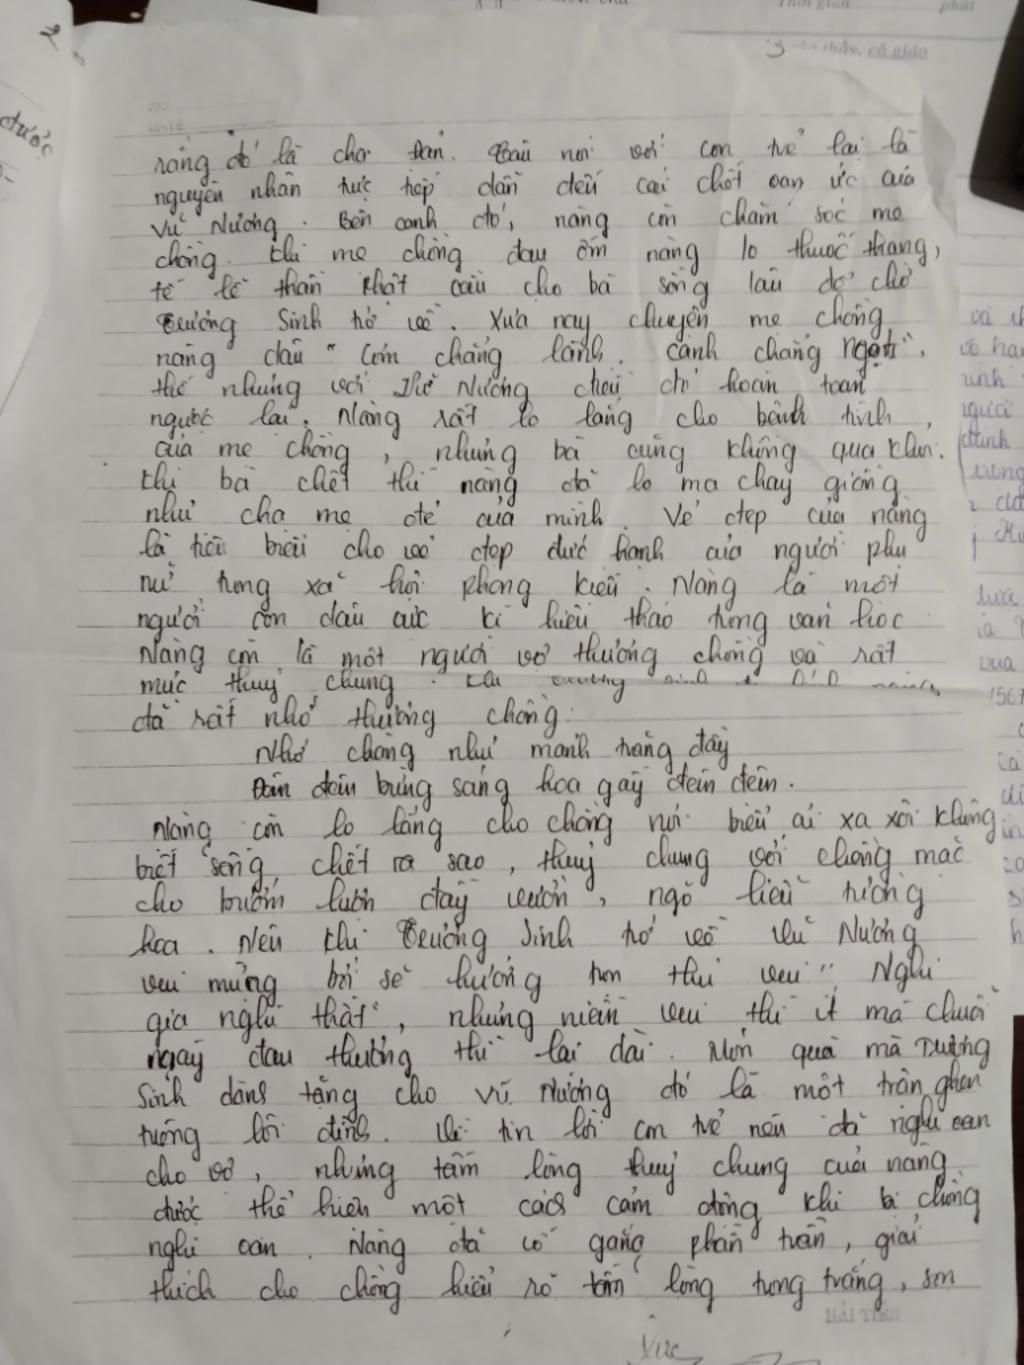 rằng đó là cha Đản. Câu nói với con trẻ lại là
nguyên nhân trực tiếp dẫn đến cái chết oan ức của
Vũ Nương. Bên cạnh đó, nàng còn chăm sóc mẹ
chồng. Khi mẹ chồng đau ốm nàng lo thuốc thang,
tế lễ thần phật cầu cho bà sống lâu để chờ
Trương Sinh trở về. Xưa nay chuyện mẹ chồng
nàng dâu "Cơm chẳng lành, canh chẳng ngọt",
thế nhưng với Vũ Nương điều đó hoàn toàn
ngược lại. Nàng rất lo lắng cho bệnh tình
của mẹ chồng, nhưng bà cũng không qua khỏi.
Khi bà chết thì nàng đã lo ma chay giống
như cha mẹ đẻ của mình. Vẻ đẹp của nàng
là tiêu biểu cho vẻ đẹp đức hạnh của người phụ
nữ trong xã hội phong kiến. Nàng là một
người con dâu cực kì hiếu thảo trong văn học
Nàng còn là một người vợ thương chồng và rất
mực thuỷ chung. Khi
đã rất nhớ thương chồng:
Nhớ chàng như mảnh trăng đầy
Đêm đêm bừng sáng hoa gầy đêm đêm.
Nàng còn lo lắng cho chồng nơi biên ải xa xôi không
biết sống, chết ra sao, thuỷ chung với chồng mặc
cho bướm lượn đầy vườn, ngõ liễu tường
hoa. Nên khi Trương Sinh trở về Vũ Nương
vui mừng bởi sẽ hưởng trọn thú vui "Nghi
gia nghi thất", nhưng niềm vui thì ít mà chuỗi
ngày đau thương thì lại dài. Món quà mà Trương
Sinh dành tặng cho Vũ Nương đó là một trận ghen
tuông lôi đình. Vì tin lời con trẻ nên đã nghi oan
cho vợ, nhưng tấm lòng thuỷ chung của nàng
được thể hiện một cách cảm động khi bị chồng
nghi oan. Nàng đã cố gắng phân trần, giải
thích cho chồng hiểu rõ tấm lòng trong trắng, son